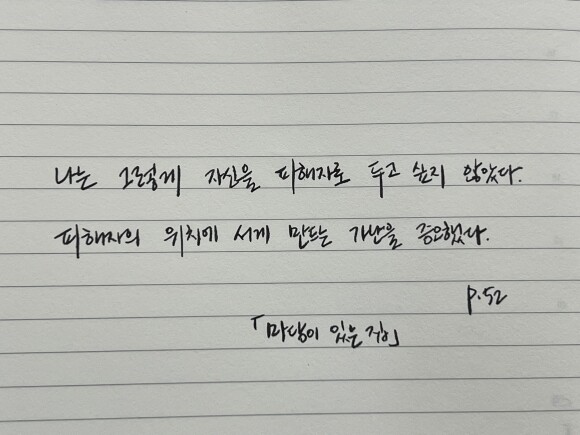 나는 그렇게 자신을 피해자로 두고 싶지 않았다.
피해자의 위치에 서게 만드는 가난을 증오했다.
p.52
「마당이 있는 집」